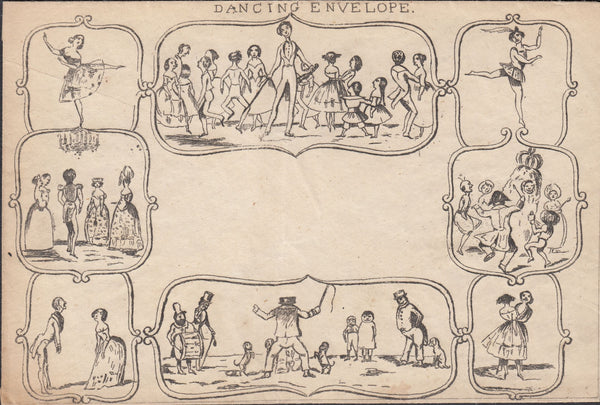 DANCING ENVELOPE.